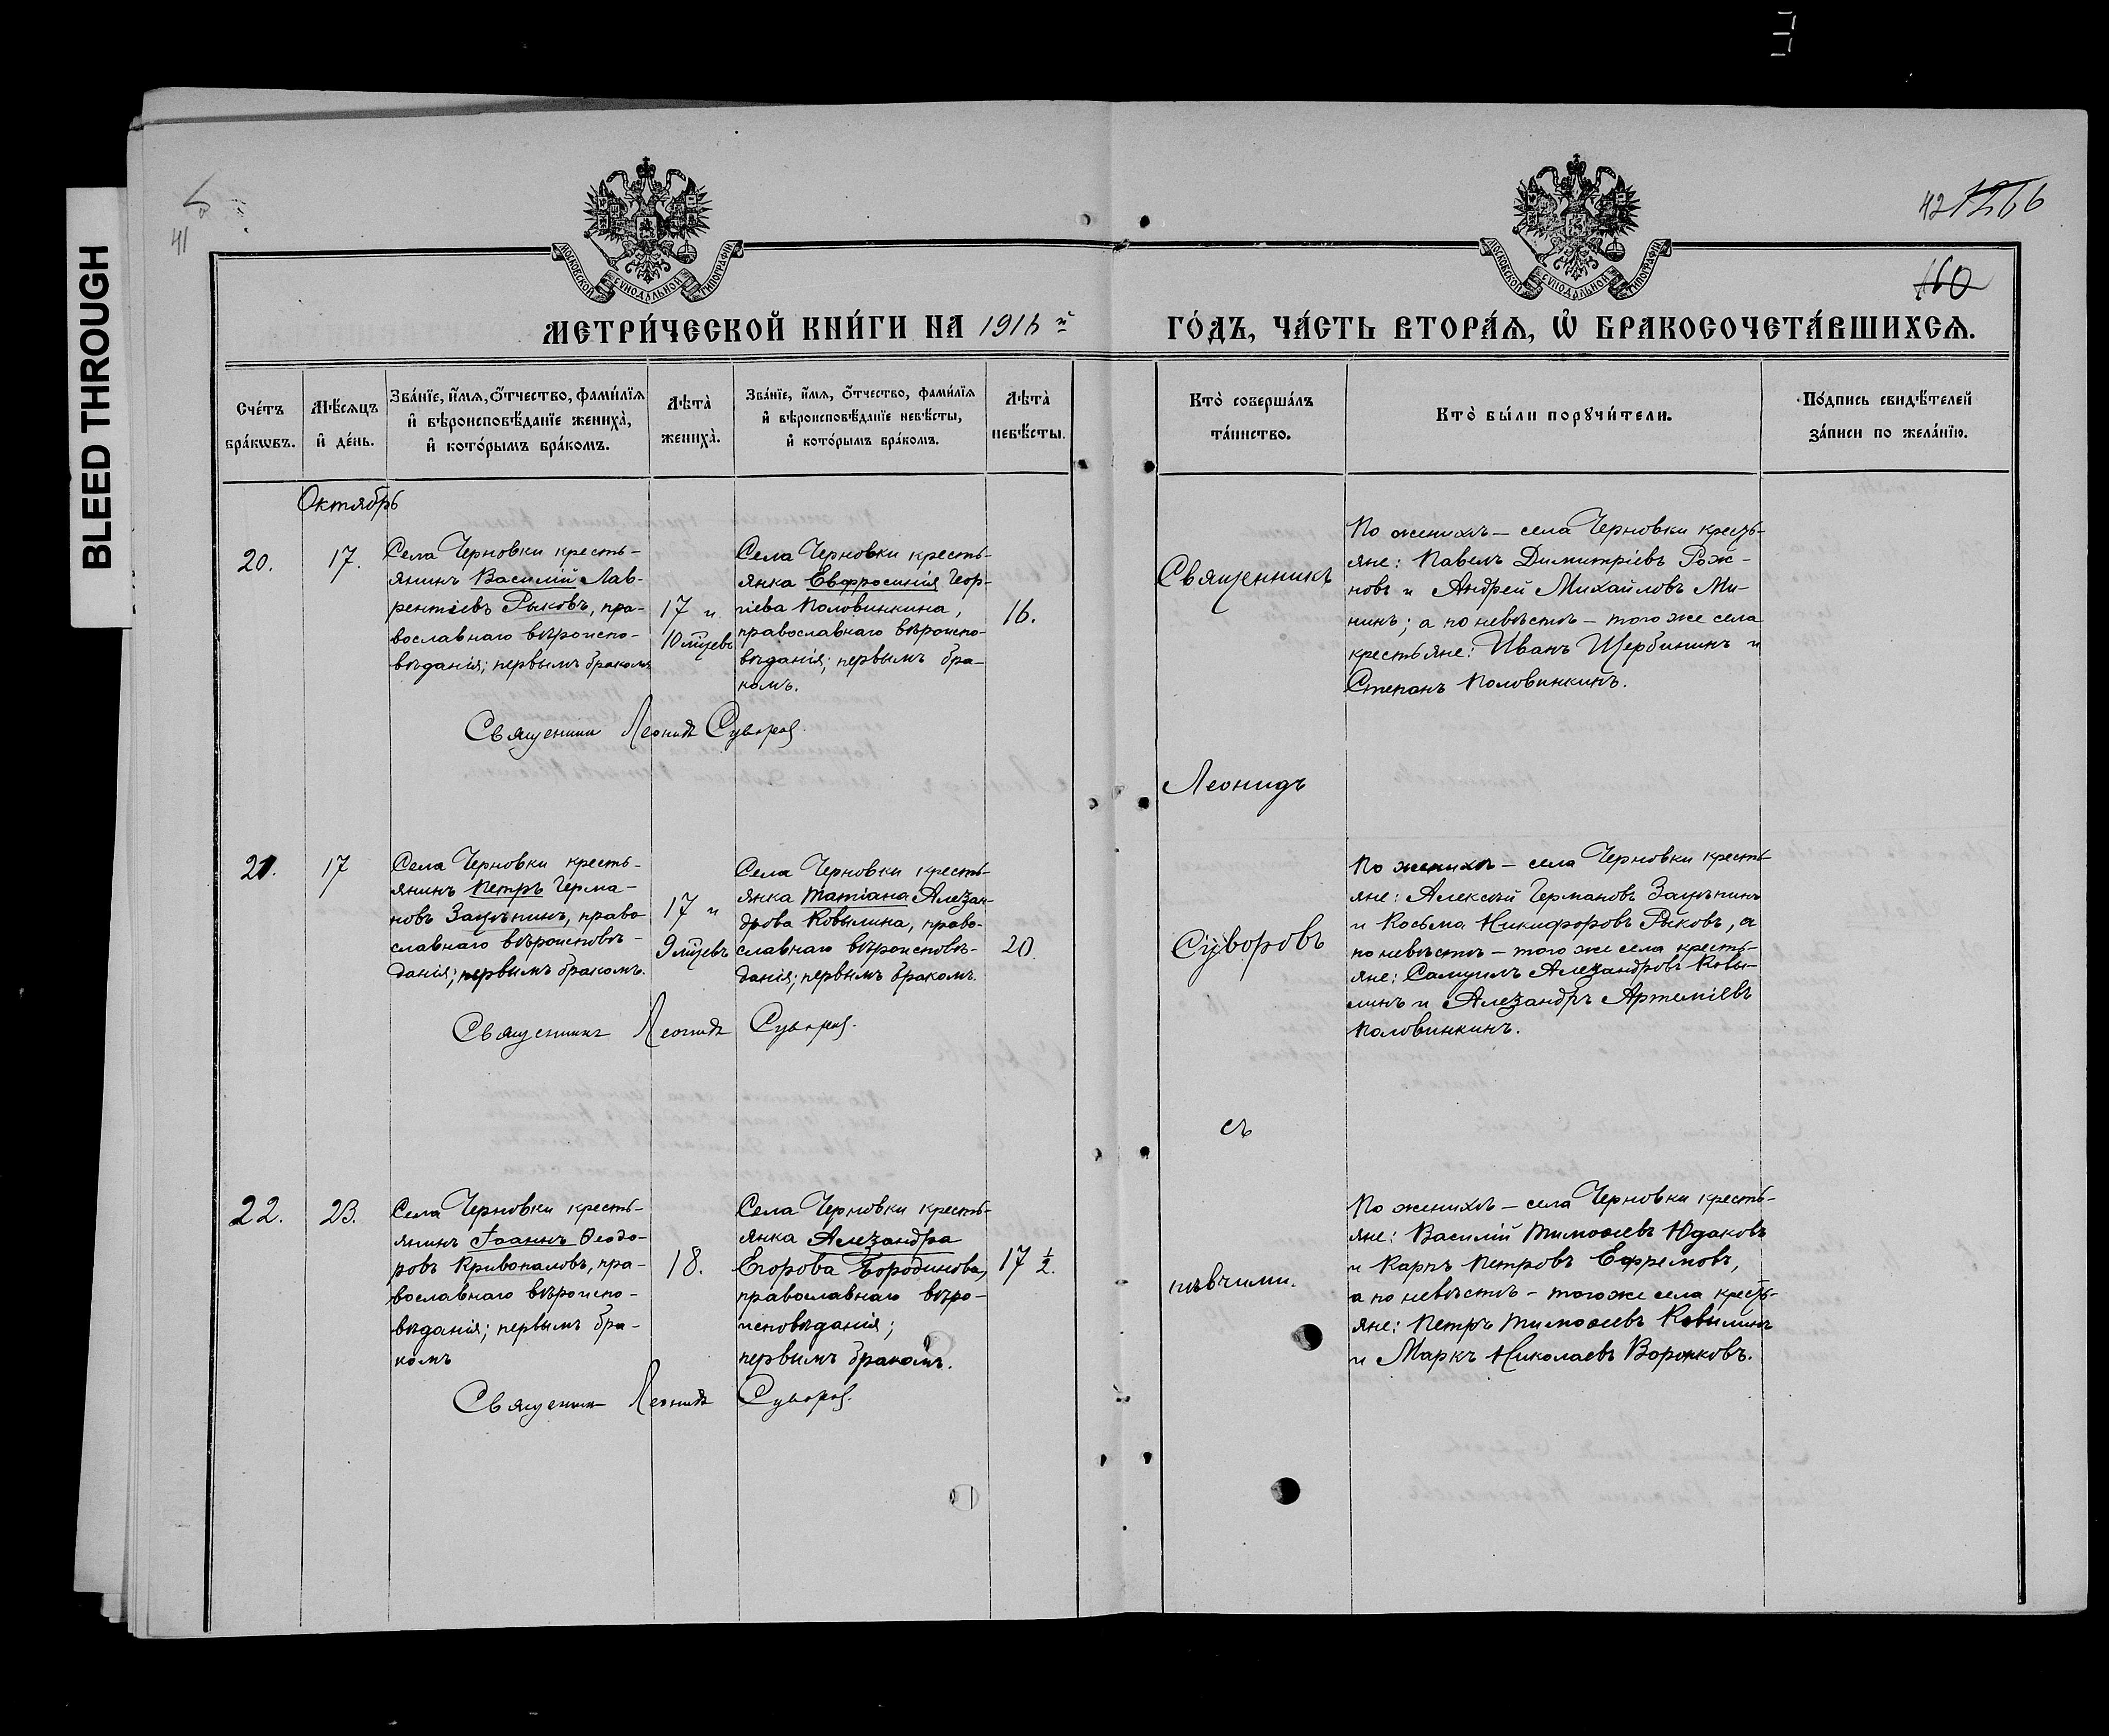 BLEED THROUGH
41
42 1266
160
МОСКОВСКОЙ СѴНОДАЛЬНОЙ ТИПОГРАФІИ
МОСКОВСКОЙ СѴНОДАЛЬНОЙ ТИПОГРАФІИ
МЕТРИ́ЧЕСКОЙ КНИ́ГИ НА 1916й ГО́ДЪ, ЧА́СТЬ ВТОРА́Ѧ, Ѽ БРАКОСОЧЕТА́ВШИХСѦ.
Сче́тъ бра́кѡвъ.
Мѣ́сѧцъ и҆ де́нь.
Зва́нїе, и҆́мѧ, ѻ҆́тчество, фами́лїѧ
и҆ вѣроисповѣ́данїе жениха̀,
и҆ кото́рымъ бра́комъ.
Лѣ́та̀ жениха̀.
Зва́нїе, и҆́мѧ, ѻ҆́тчество, фами́лїѧ
и҆ вѣроисповѣ́данїе невѣ́сты,
и҆ кото́рымъ бра́комъ.
Лѣ́та̀ невѣ́сты.
Кто̀ соверша́лъ
та́инство.
Кто̀ бы́ли порꙋчи́тели.
По́дпись свидѣ́телей
за́писи по жела́нїю.
Октябрь
20.
17.
Села Черновки кресть-
янинъ Василій Лав-
рентіевъ Рыковъ, пра-
вославнаго вѣроиспо-
вѣданія; первымъ бракомъ
17 и
10 мцевъ
Села Черновки кресть-
янка Евфросинія Геор-
гіева Половинкина,
православнаго вѣроиспо-
вѣданія; первымъ бра-
комъ.
16.
Священникъ Леонидъ Суворовъ.
Священникъ
По женихѣ — села Черновки кресть-
яне: Павелъ Димитріевъ Рож-
новъ и Андрей Михайловъ Ми-
нинъ; а по невѣстѣ — того же села
крестьяне: Иванъ Щербининъ и
Степанъ Половинкинъ.
Леонидъ
21.
17
Села Черновки кресть-
янинъ Петръ Герма-
новъ Зацѣпинъ, право-
славнаго вѣроисповѣ-
данія; первымъ бракомъ.
17 и
9 мцевъ
Села Черновки кресть-
янка Татіана Алексан-
дрова Ковылина, право-
славнаго вѣроисповѣ-
данія; первымъ бракомъ.
20.
Священникъ Леонидъ Суворовъ.
Суворовъ
По женихѣ — села Черновки кресть-
яне: Алексѣй Германовъ Зацѣпинъ
и Косьма Никифоровъ Рыковъ, а
по невѣстѣ — того же села кресть-
яне: Самуилъ Александровъ Ковы-
линъ и Александръ Артеміевъ
Половинкинъ.
съ
22.
23.
Села Черновки кресть-
янинъ Іоаннъ Ѳеодо-
ровъ Кривопаловъ, пра-
вославнаго вѣроиспо-
вѣданія; первымъ бра-
комъ
18.
Села Черновки кресть-
янка Александра
Егорова Бородинова,
православнаго вѣро-
исповѣданія;
первымъ бракомъ.
17 1/2.
Священникъ Леонидъ Суворовъ.
пѣвчими.
По женихѣ — села Черновки кресть-
яне: Василій Тимоѳеевъ Юдаковъ
и Карпъ Петровъ Ефремовъ,
а по невѣстѣ — того же села кресть-
яне: Петръ Тимоѳеевъ Ковылинъ
и Маркъ Николаевъ Воронковъ.